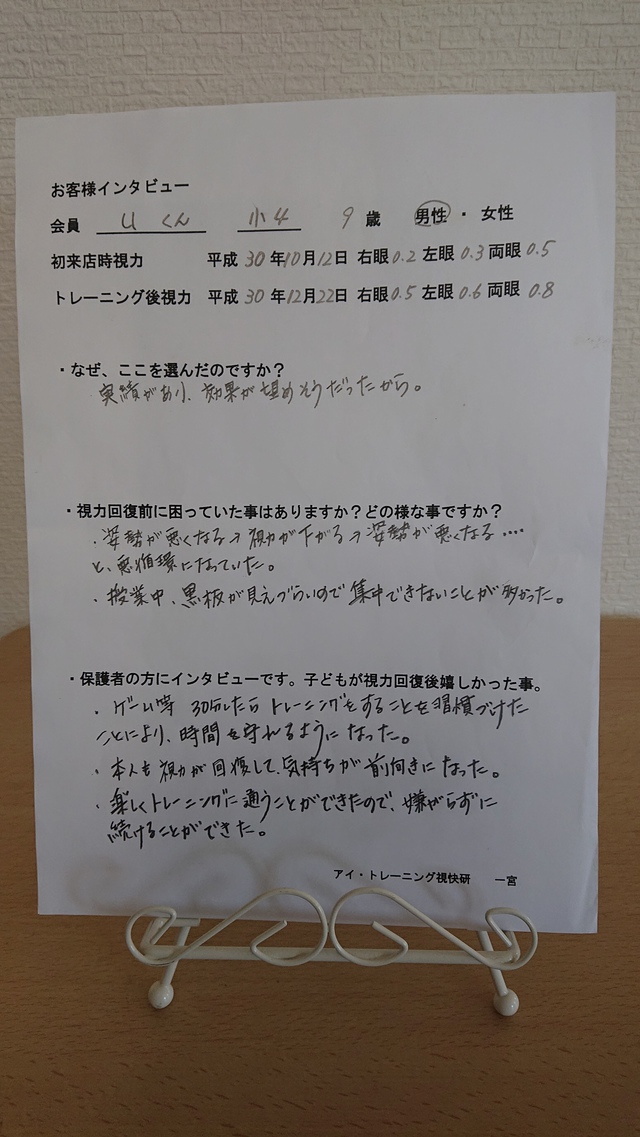 お客様インタビュー
会員 Uくん 小4 9歳 男性・女性
初来店時視力 平成30年10月12日 右眼0.2 左眼0.3 両眼0.5
トレーニング後視力 平成30年12月22日 右眼0.5 左眼0.6 両眼0.8
・なぜ、ここを選んだのですか？
実績があり、効果が望めそうだったから。
・視力回復前に困っていた事はありますか？どの様な事ですか？
・姿勢が悪くなる→視力が下がる→姿勢が悪くなる‥‥
と、悪循環になっていた。
・授業中、黒板が見えづらいので集中できないことが多かった。
・保護者の方にインタビューです。子どもが視力回復後嬉しかった事。
・ゲーム等 30分したらトレーニングをすることを習慣づけた
ことにより、時間を守れるようになった。
・本人も視力が回復して、気持ちが前向きになった。
・楽しくトレーニングに通うことができたので、嫌がらずに
続けることができた。
アイ・トレーニング視快研 一宮